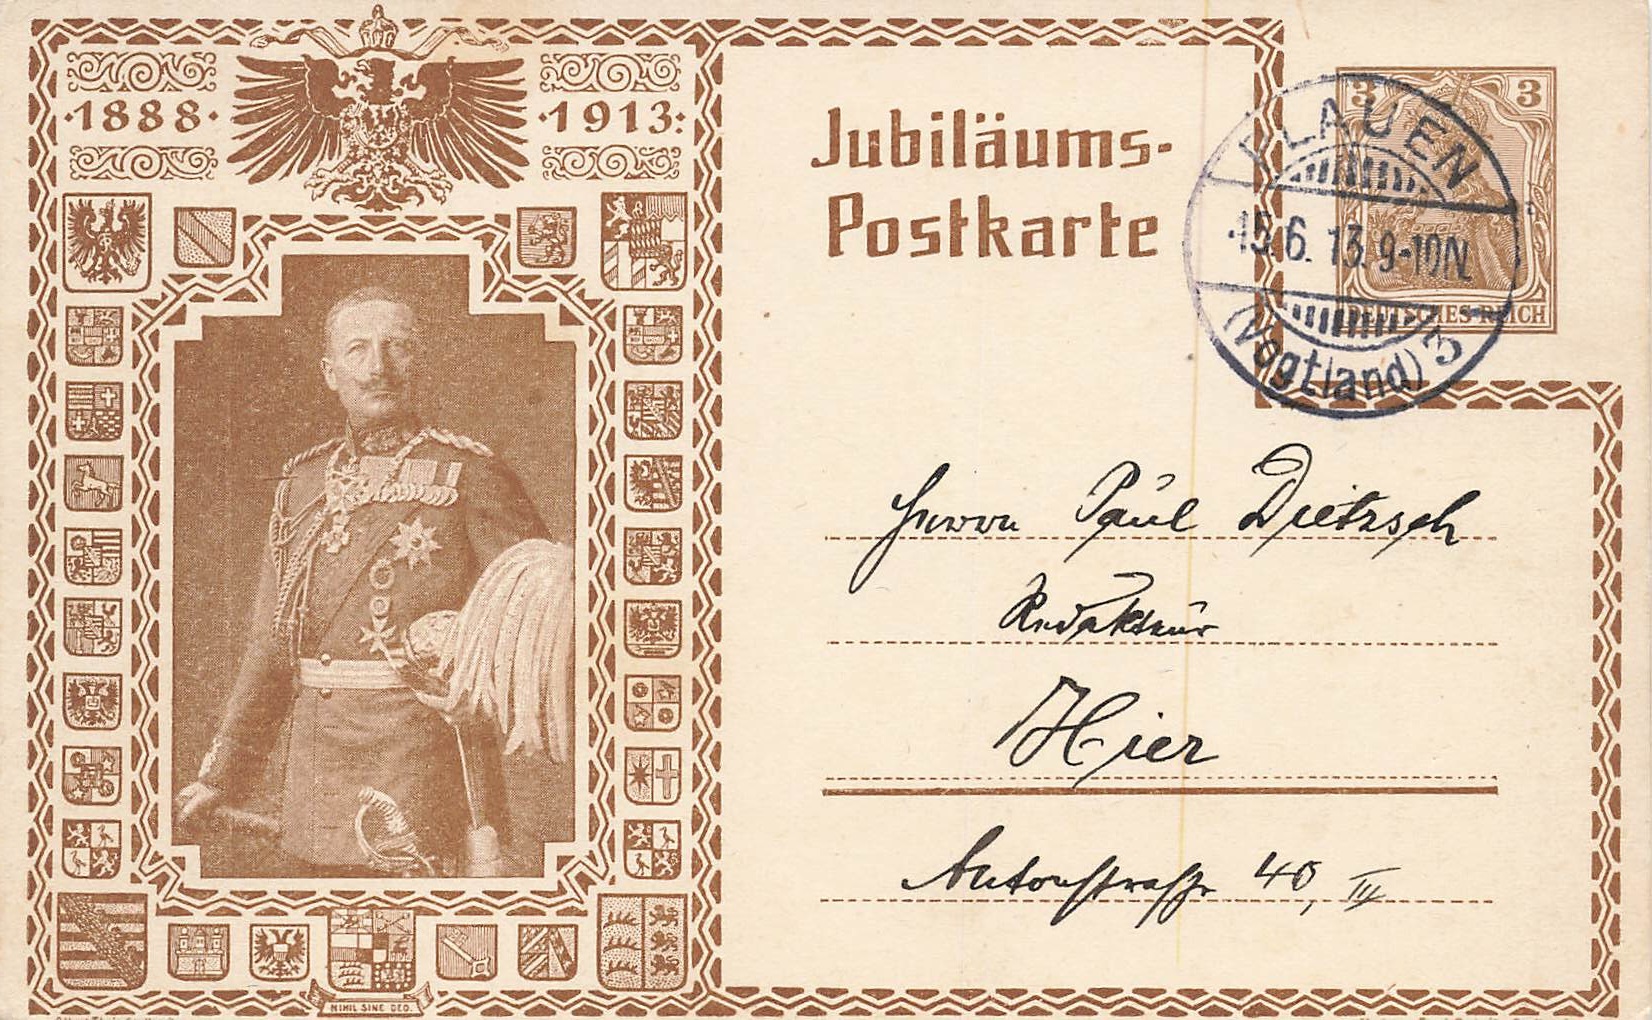 1888
1913
Jubiläums-
Postkarte
3 3
DEUTSCHES REICH
PLAUEN
15.6.13.9-10N.
(Vogtland) 3
Herrn Paul Dietzsch
Redakteur
Hier
Antonstraße 40, III
NIHIL SINE DEO.